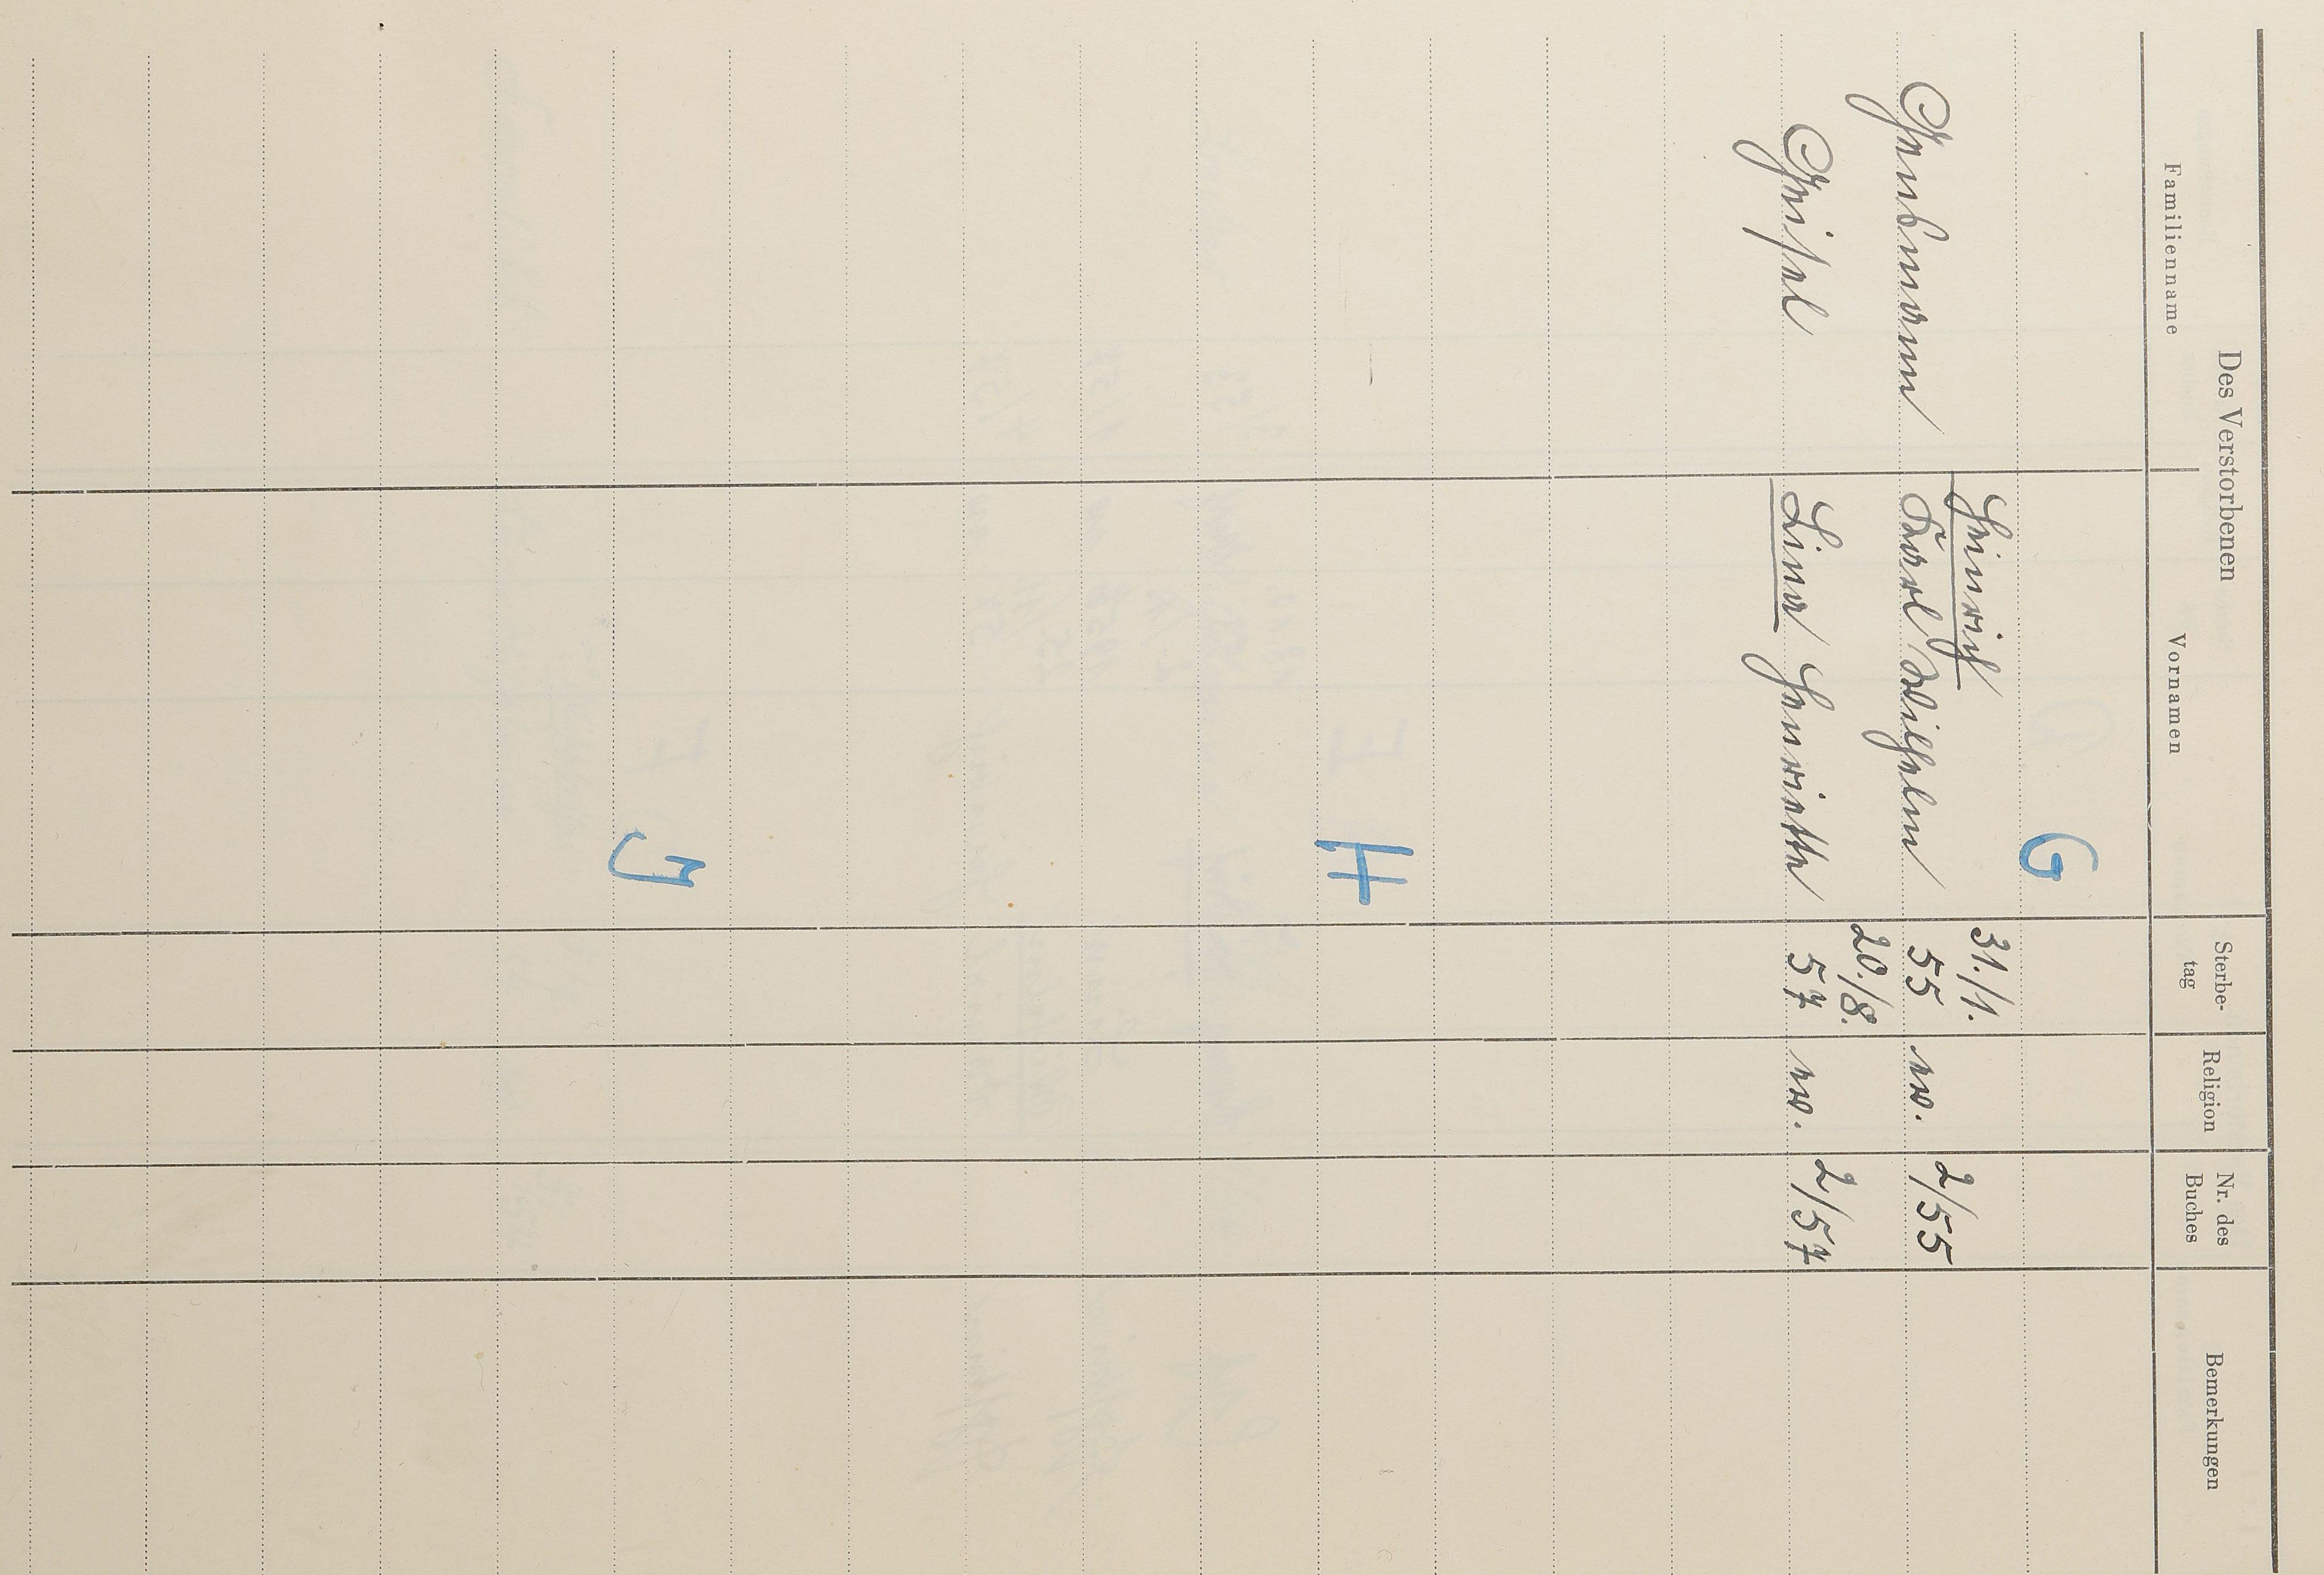 Des Verstorbenen
Familienname Vornamen Sterbe-tag Religion Nr. des Buches Bemerkungen
G
Heinrich 31./1.
Karl Wilhelm 55 ev. 2/55
20./8.
Geisel Lina Henriette 57 ev. 2/57
H
J